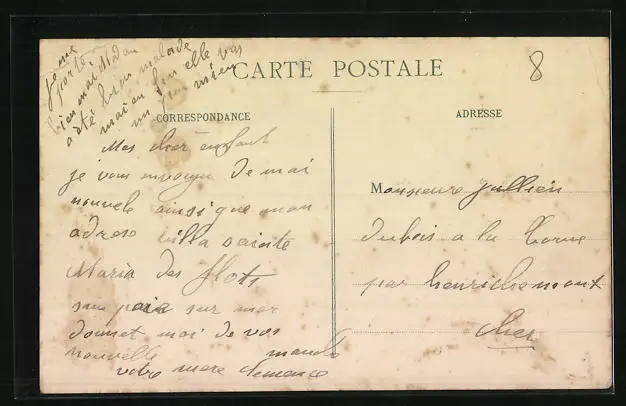 je me
porte
bien mai didon
a été bien malade
mai en fin elle vas
un peu mieu
8
CARTE POSTALE
CORRESPONDANCE
ADRESSE
Mes cher enfant
je vous envoyer de mai
nouvele ainsi que mon
adrese villa sainte
Maria des flots
sur mer
donnet moi de vos
nouvelle
votre mere clemence
Monsieure Jullien
Dubois a la Borne
par henrichemont
cher